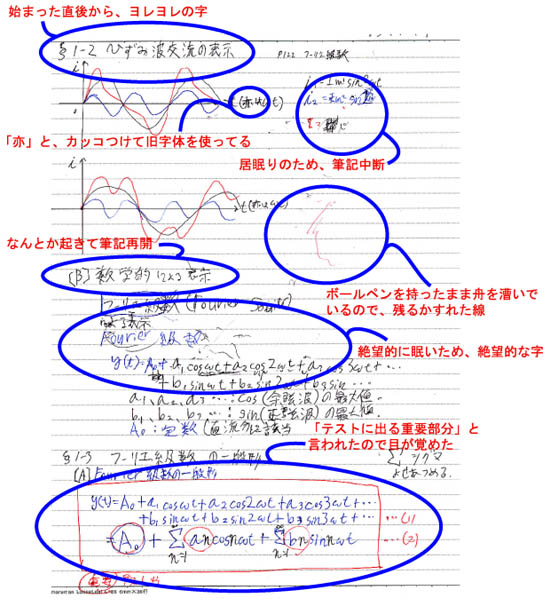 始まった直後から、ヨレヨレの字
§1-2 ひずみ波交流の表示
P122 フーリエ級数
i
i₁=Im sinωt
「亦」と、カッコつけて旧字体を使ってる
居眠りのため、筆記中断
i
なんとか起きて筆記再開
[B] 数学的による表示
ボールペンを持ったまま舟を漕いで
いるので、残るかすれた線
フーリエ級数 (Fourier
Fourier 級数
絶望的に眠いため、絶望的な字
y(t)=A₀+a₁cosωt+a₂cos2ωt+a₃cos3ωt+…
+b₁sinωt+b₂sin2ωt+b₃sin…
a₁,a₂,a₃…cos(余弦波)の最大値.
b₁,b₂,b₃…sin(正弦波)の最大値.
A₀:定数(直流分に該当
「テストに出る重要部分」と
言われたので目が覚めた
§1-3 フーリエ級数の一般形
Σシグマ
[A] Fourier級数の一般形
よせあつめる.
y(t)=A₀+a₁cosωt+a₂cos2ωt+a₃cos3ωt+…
+b₁sinωt+b₂sin2ωt+b₃sin3ωt+… …(1)
=A₀+Σ aₙcosnωt+Σ bₙsinnωt …(2)
n=1 n=1